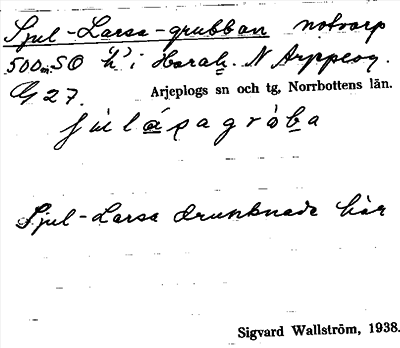 Sjul-Larsa-grubban notvarp
500m SO h i Horah. N Arpeog.
G 27. Arjeplogs sn och tg, Norrbottens län.
Sjul-Larsa drunknade här
Sigvard Wallström, 1938.